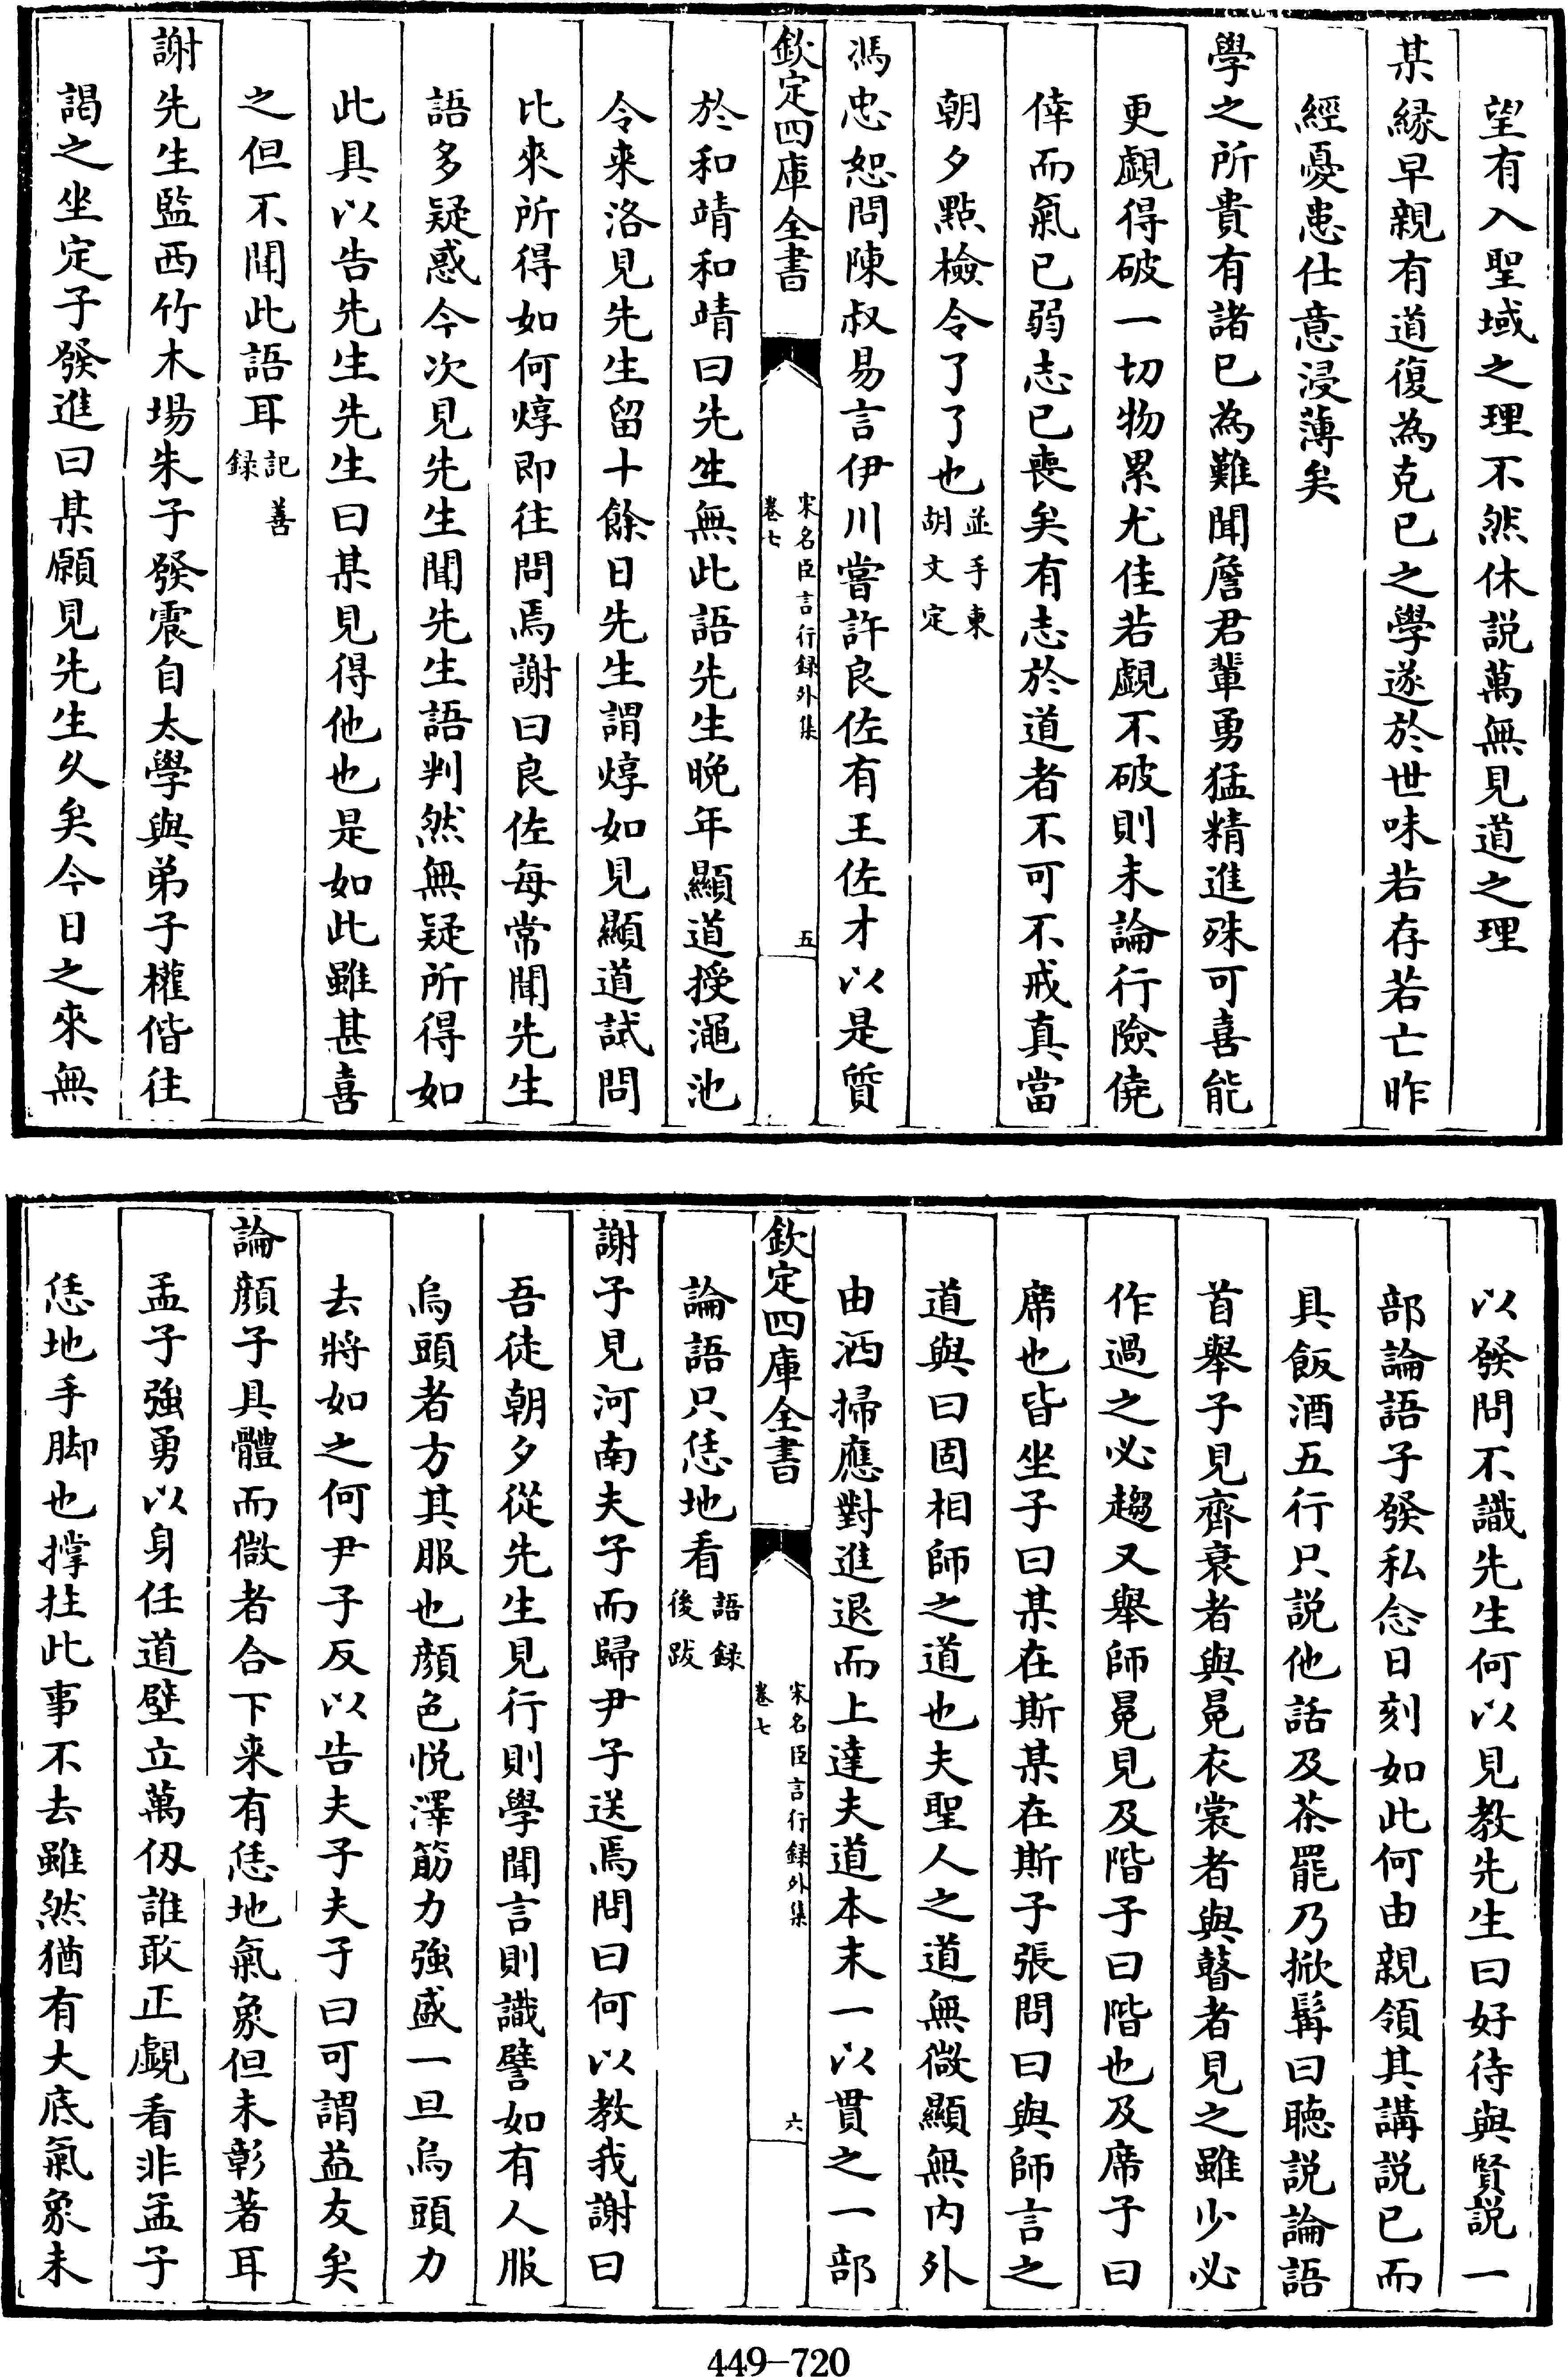 望有入聖域之理不然休説萬無見道之理
某縁早親有道復為克已之學遂於世味若存若亡昨
經憂患仕意浸薄矣
學之所貴有諸已為難聞詹君輩勇猛精進殊可喜能
更覷得破一切物累尤佳若覷不破則未論行險僥
倖而氣已弱志已喪矣有志於道者不可不戒真當
朝夕點檢令了了也並手東胡文定
馮忠恕問陳叔易言伊川嘗許良佐有王佐才以是質
欽定四庫全書
宋名臣言行録外集
卷七
五
於和靖和靖曰先生無此語先生晚年顯道授澠池
令来洛見先生留十餘日先生謂焞如見顯道試問
比來所得如何焞即往問焉謝曰良佐每常聞先生
語多疑惑今次見先生聞先生語判然無疑所得如
此具以告先生先生曰某見得他也是如此雖甚喜
之但不聞此語耳記善録
謝先生監西竹木場朱子發震自太學與弟子權偕往
謁之坐定子發進曰某願見先生久矣今日之來無
以發問不識先生何以見教先生曰好待與賢説一
部論語子發私念日刻如此何由親領其講説已而
具飯酒五行只説他話及茶罷乃掀髯曰聴説論語
首舉子見齊衰者與冕衣裳者與瞽者見之雖少必
作過之必趨又舉師冕見及階子曰階也及席子曰
席也皆坐子曰某在斯某在斯子張問曰與師言之
道與曰固相師之道也夫聖人之道無微顯無内外
由洒掃應對進退而上達夫道本末一以貫之一部
欽定四庫全書
宋名臣言行録外集
卷七
六
論語只恁地看語録後跋
謝子見河南夫子而歸尹子送焉問曰何以教我謝曰
吾徒朝夕從先生見行則學聞言則識譬如有人服
烏頭者方其服也顔色悦澤筋力強盛一旦烏頭力
去將如之何尹子反以告夫子夫子曰可謂益友矣
論顔子具體而微者合下来有恁地氣象但未彰著耳
孟子強勇以身任道壁立萬仭誰敢正覷看非孟子
恁地手脚也撑拄此事不去雖然猶有大底氣象未
449-720